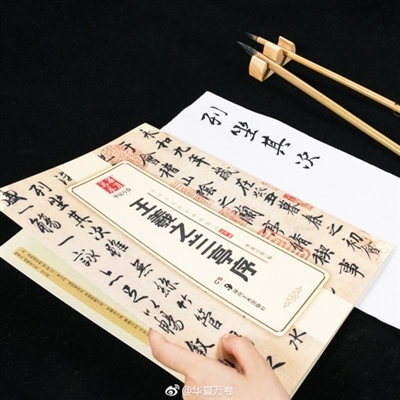 列坐其次
永和九年歲在癸丑暮春之初會
于會稽山陰之蘭亭脩稧事
王羲之兰亭序
列坐其次雖無絲竹管
盛一觴一詠亦足以暢敘
水
@华夏万卷